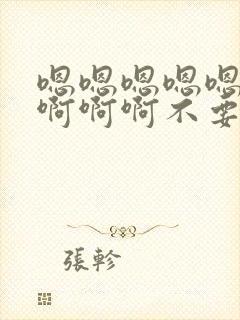 嗯嗯嗯嗯嗯
啊啊啊不要
張軫